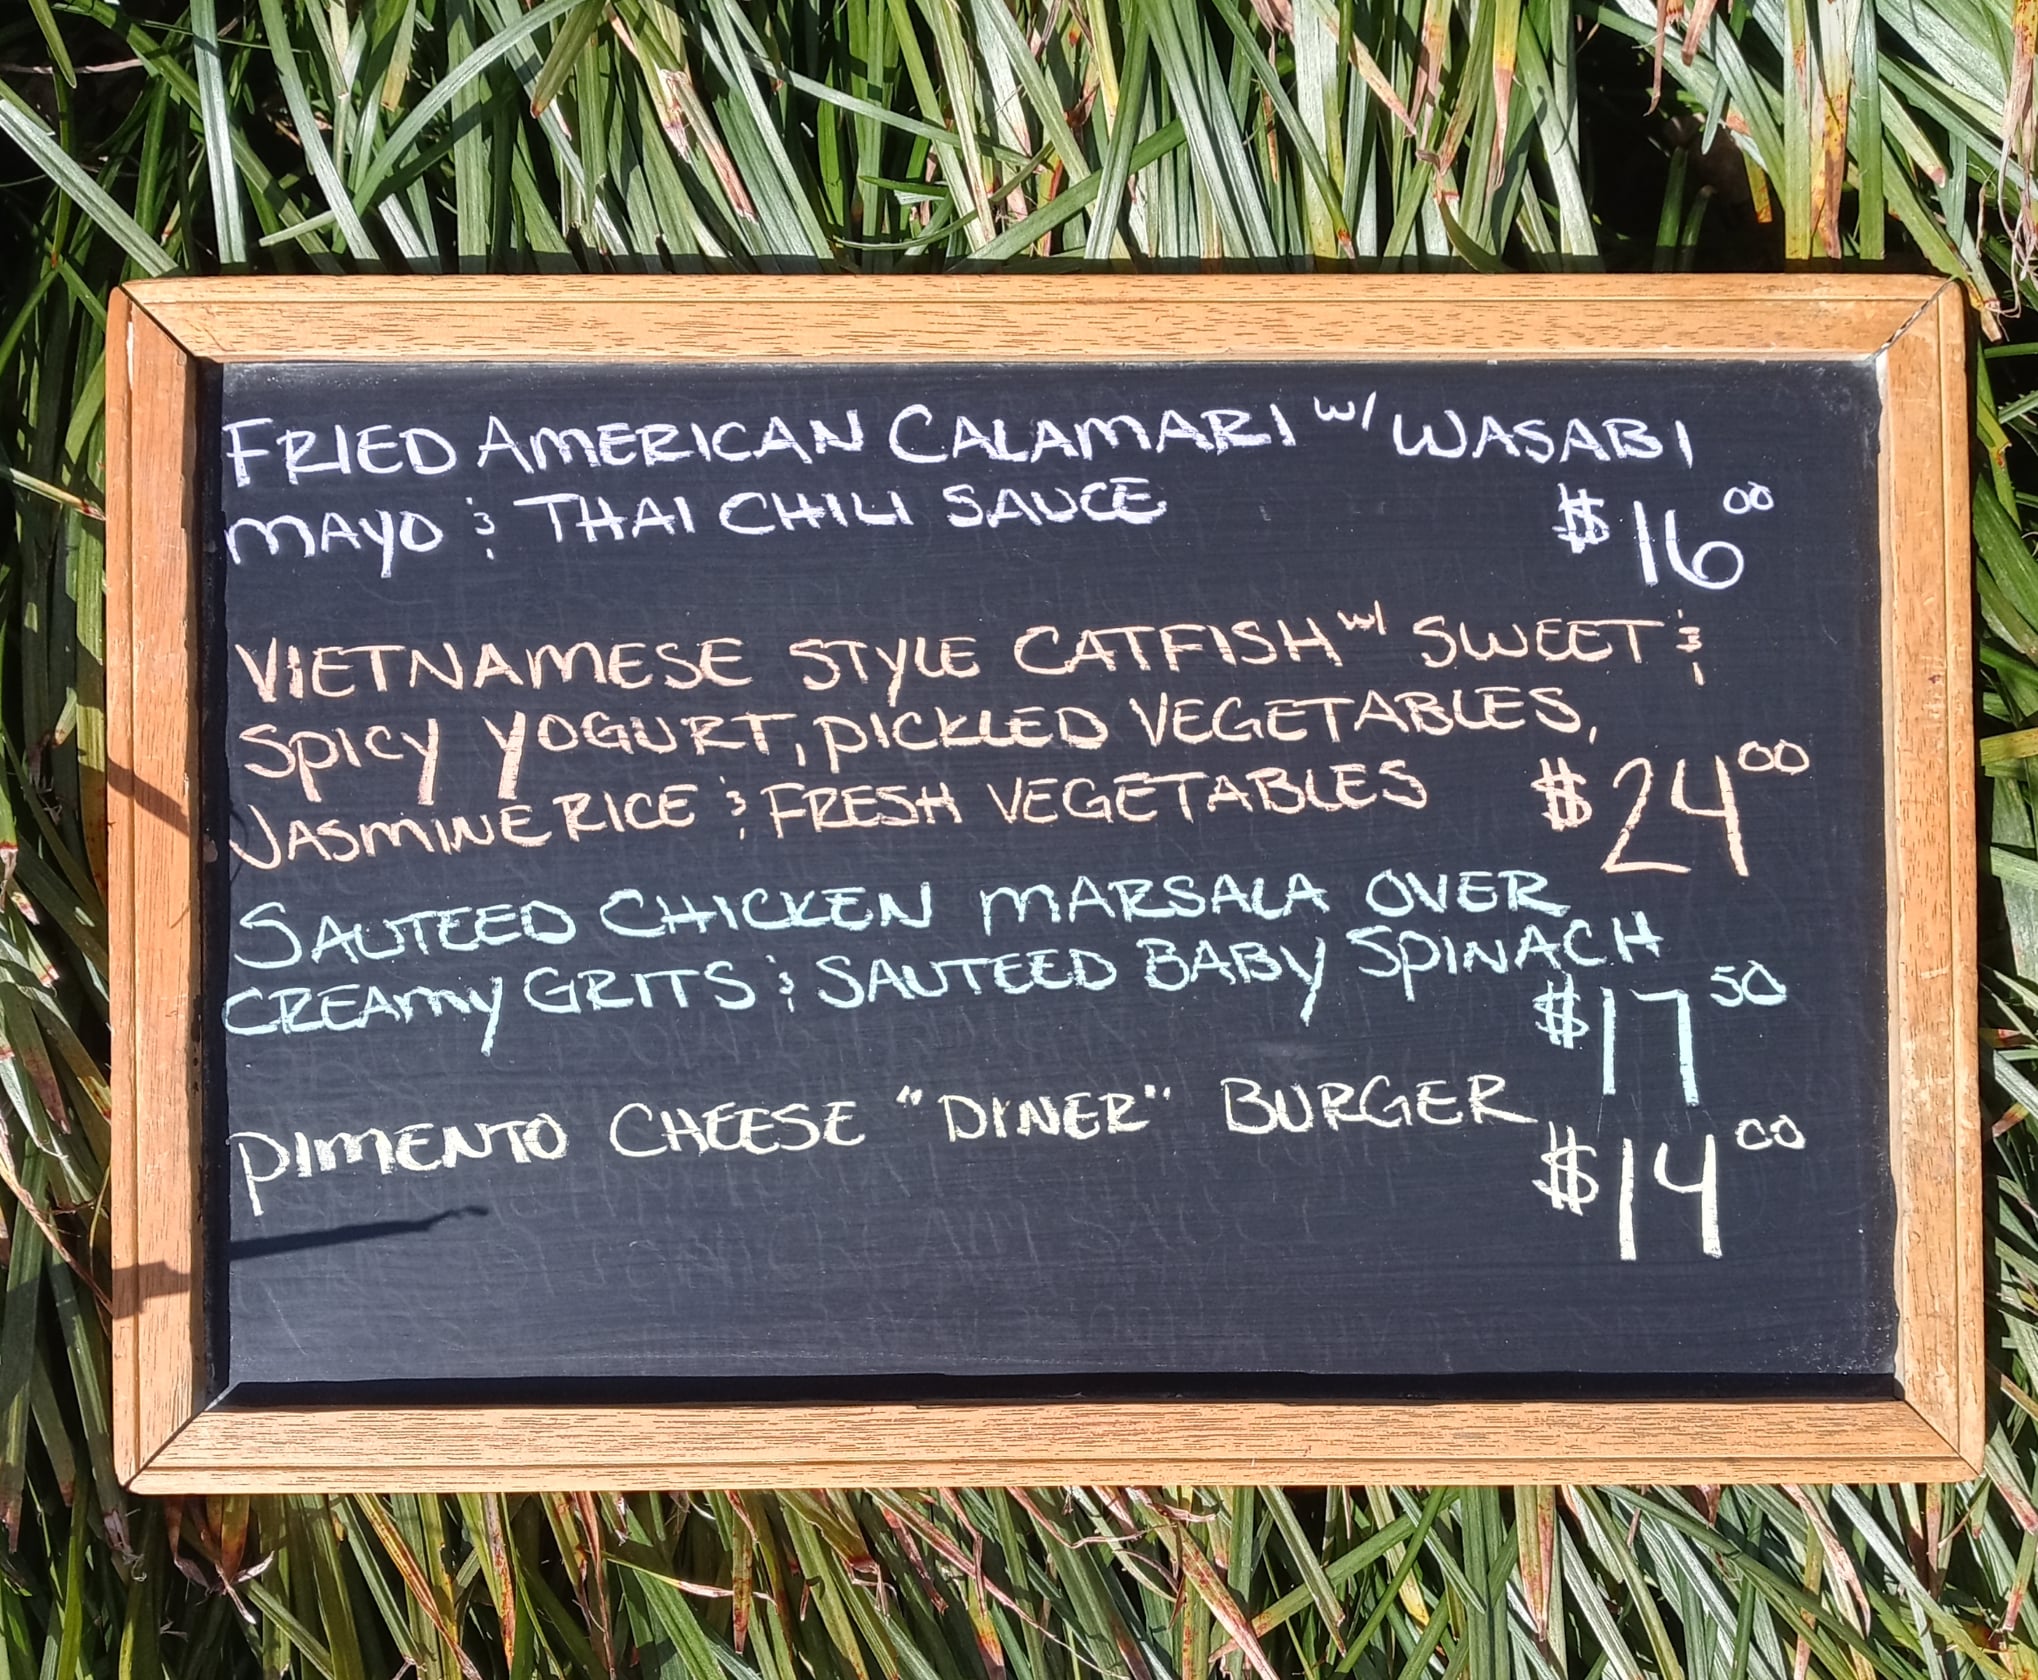 FRIED AMERICAN CALAMARI w/ WASABI
MAYO & THAI CHILI SAUCE $16.00
VIETNAMESE STYLE CATFISH w/ SWEET &
SPICY YOGURT, PICKLED VEGETABLES,
JASMINE RICE & FRESH VEGETABLES $24.00
SAUTEED CHICKEN MARSALA OVER
CREAMY GRITS & SAUTEED BABY SPINACH
$17.50
PIMENTO CHEESE "DINER" BURGER
$14.00